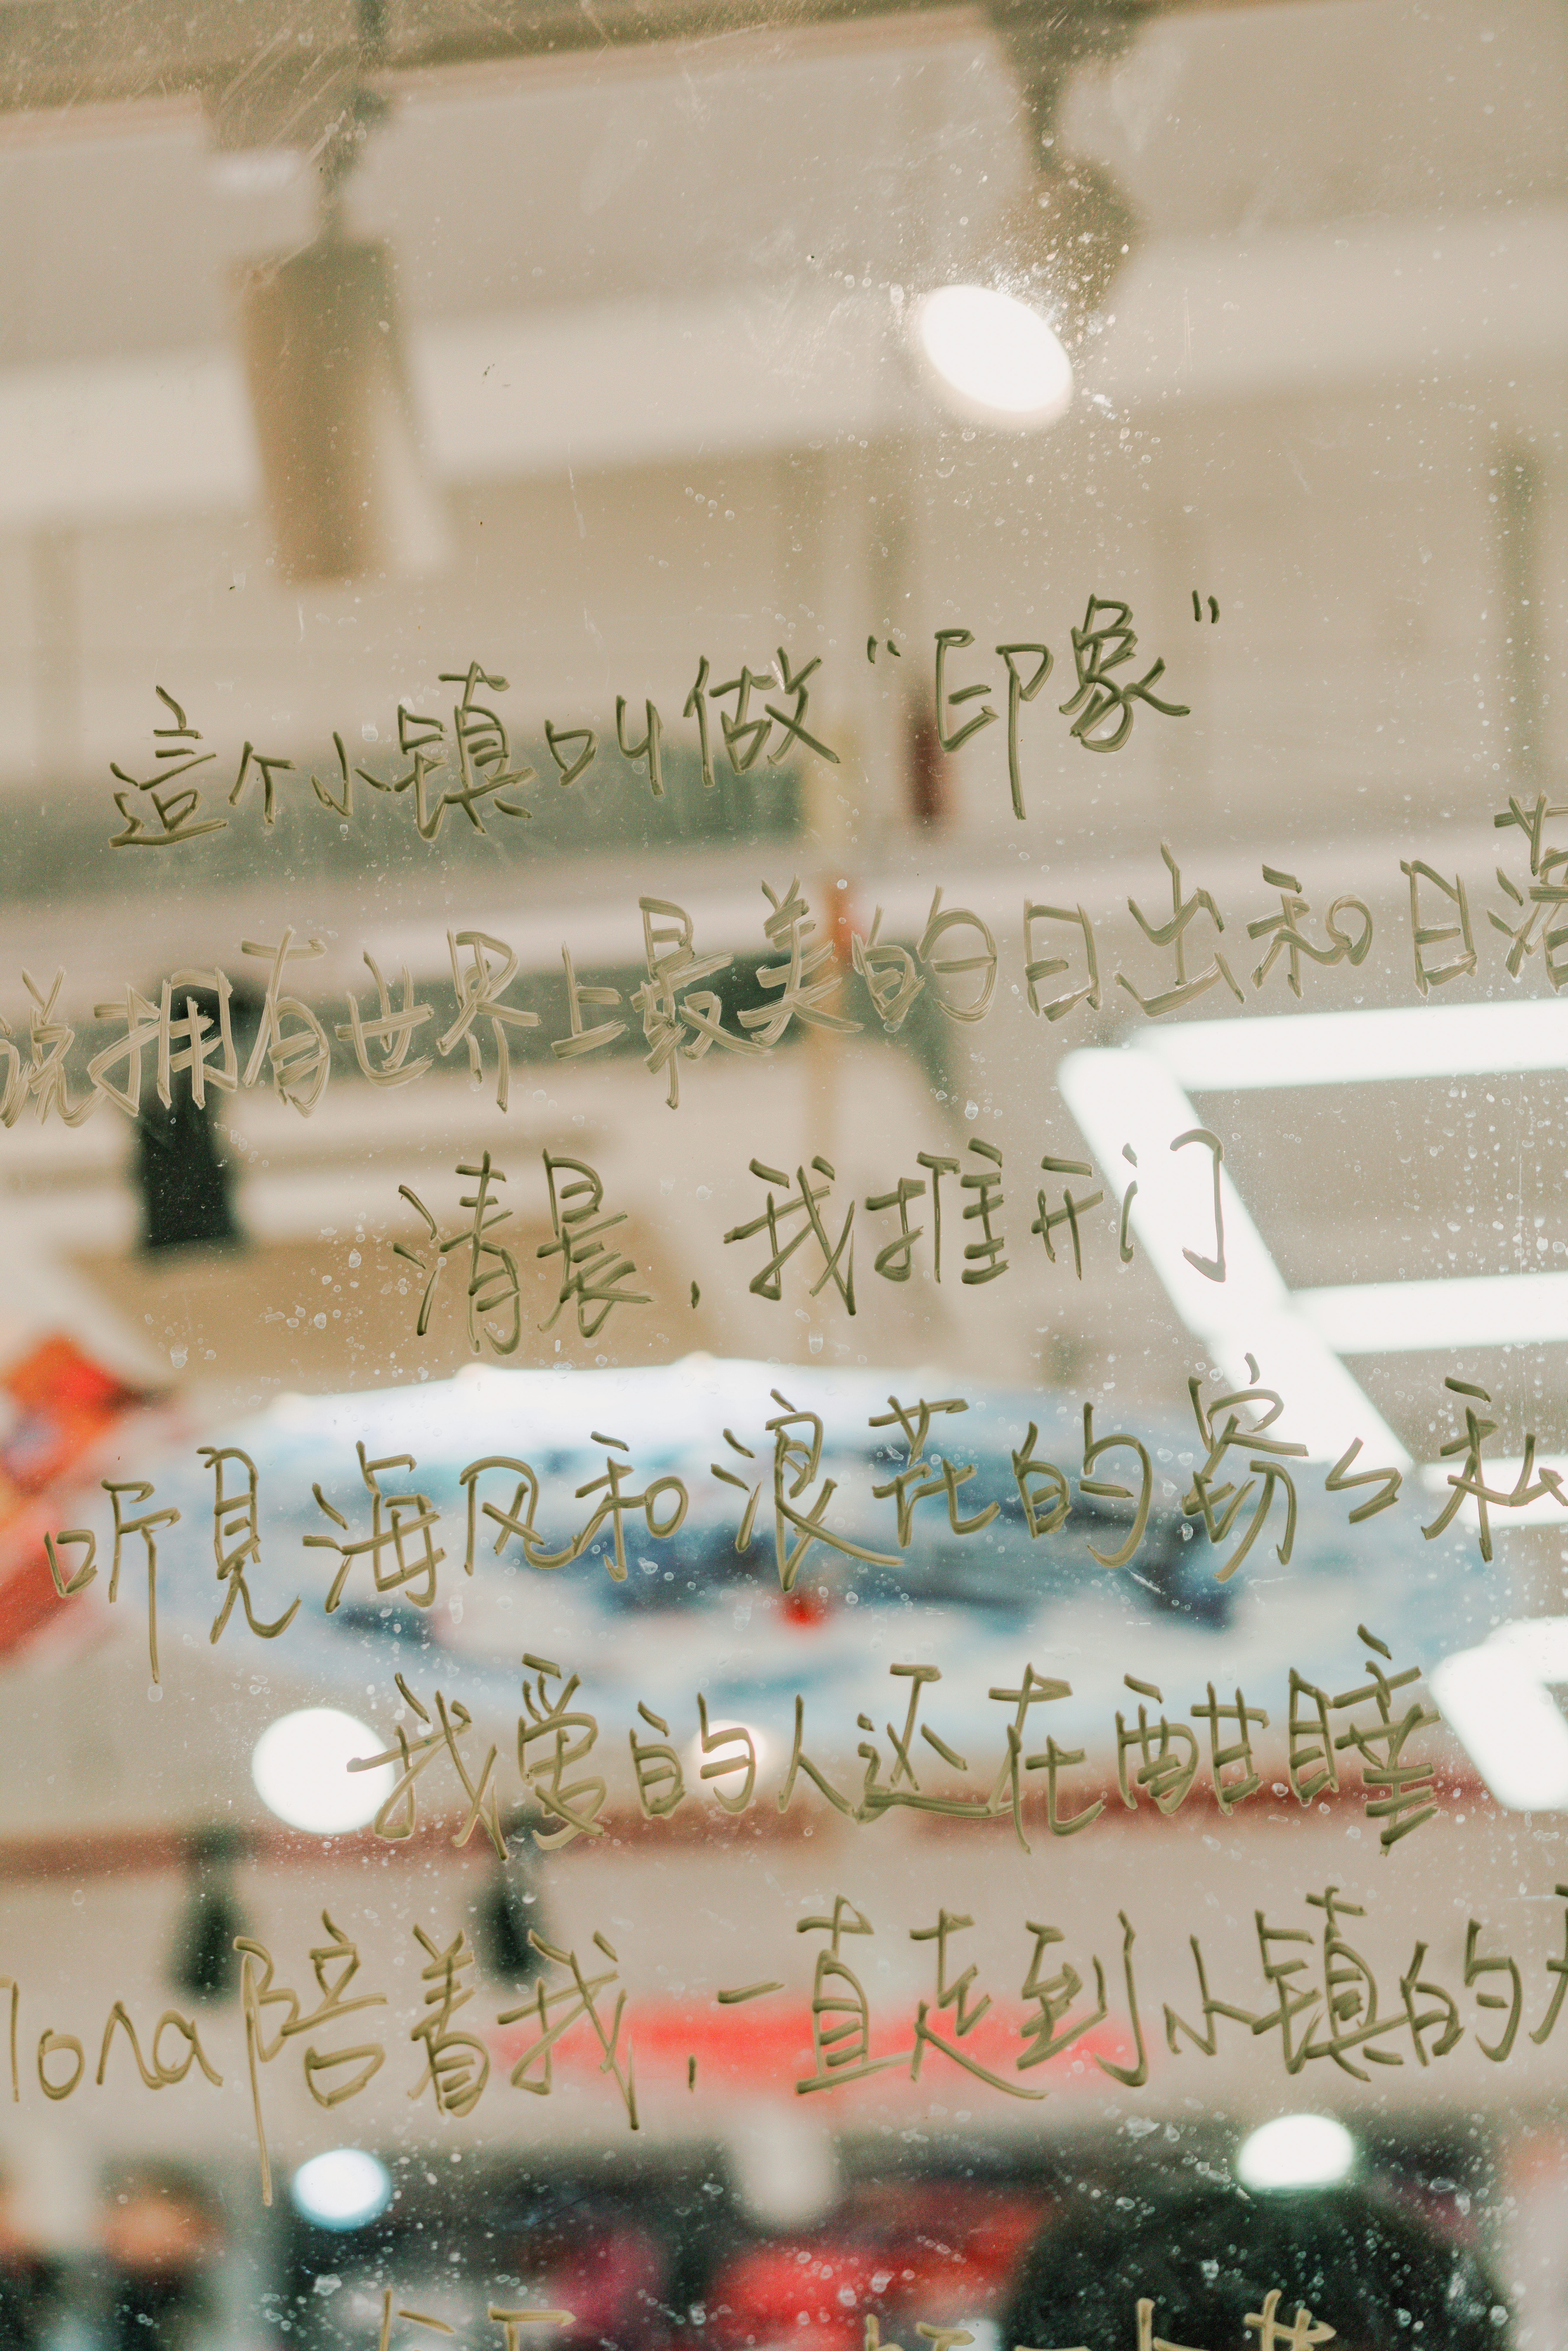 這个小镇叫做“印象”
说拥有世界上最美的日出和日落
清晨，我推开门
听見海风和浪花的窃厶私
我爱的人还在酣睡
lona陪着我，一直走到小镇的